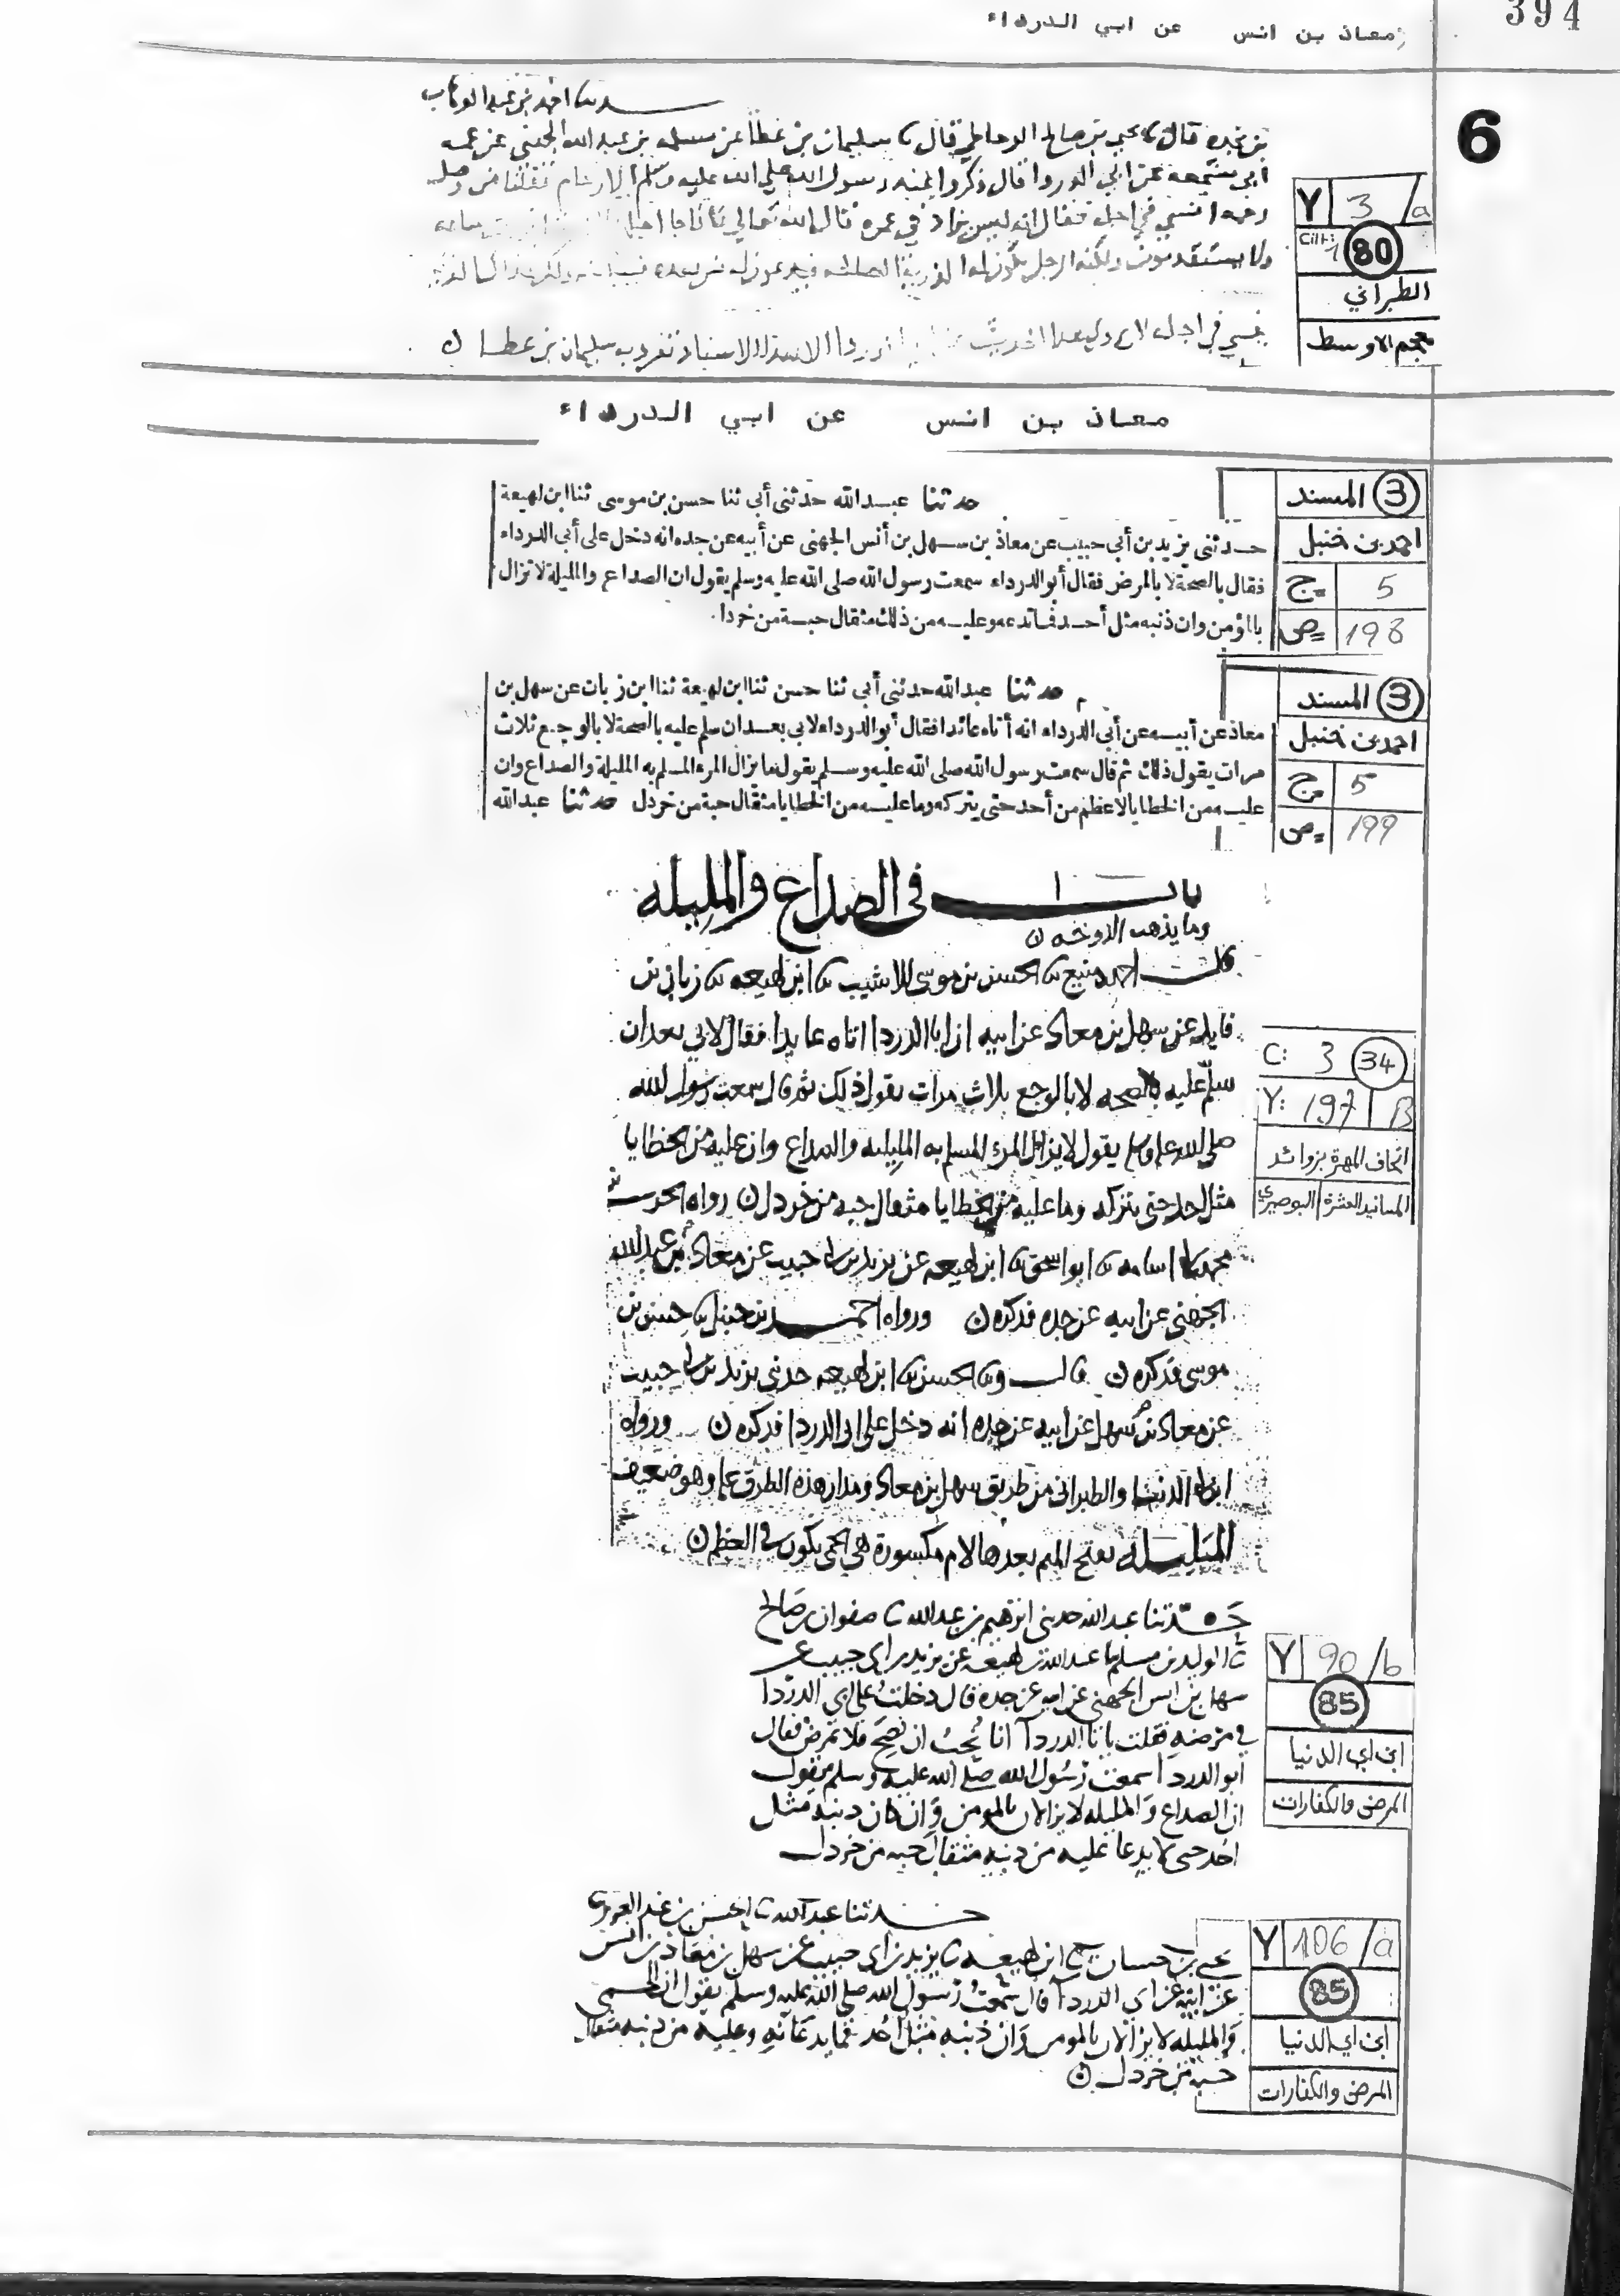 394
معاذ بن انس عن ابي الدرداء
6
حدثنا احمد بن عبد الوهاب
بن نجده قال نا يحيى بن صالح الوحاظي قال نا سليمان بن عطا عن مسلمه بن عبد الله الجهني عن عمه
ابي مشجعه عن ابي الدرداء قال ذكروا عند رسول الله صلى الله عليه وسلم الارحام فقلنا من وصل
رحمه انسئ في اجله فقال انه ليس يزاد في عمره قال الله تعالى فاذا جا اجلهم
ولا يستقدمون ولكنه الرجل تكون له الذرية الصالحه فيدعون له من بعده
في اجله لا الحديث الا بهذا الاسناد تفرد به سليمان بن عطا ن
Y 3/a
Cilt: 1 80
الطبراني
معجم الاوسط
معاذ بن انس عن ابي الدرداء
3 المسند
احمد بن حنبل
ج= 5
ص= 198
حدثنا عبد الله حدثنى أبي ثنا حسن بن موسى ثنا ابن لهيعة
حدثنى يزيد بن أبي حبيب عن معاذ بن سهل بن أنس الجهنى عن أبيه عن جده انه دخل على أبي الدرداء
فقال بالصحة لا بالمرض فقال أبو الدرداء سمعت رسول الله صلى الله عليه وسلم يقول ان الصداع والمليلة لا تزال
بالمؤمن وان ذنبه مثل أحد فما تدعه وعليه من ذلك مثقال حبة من خردل
3 المسند
احمد بن حنبل
ج= 5
ص= 199
حدثنا عبد الله حدثنى أبي ثنا حسن ثنا ابن لهيعة ثنا ابن زبان عن سهل بن
معاذ عن أبيه عن أبي الدرداء انه أتاه عائدا فقال أبو الدرداء لابي بعد ان سلم عليه بالصحة لا بالوجع ثلاث
مرات يقول ذلك ثم قال سمعت رسول الله صلى الله عليه وسلم يقول ما يزال المرء المسلم به المليلة والصداع وان
عليه من الخطايا لاعظم من أحد حتى يتركه وما عليه من الخطايا مثقال حبة من خردل حدثنا عبد الله
باب في الصداع والمليله
وما يذهب الاوخه ن
قال احمد منيع نا الحسن بن موسى الاشيب نا ابن لهيعه نا زبان بن
فايد عن سهل بن معاذ عن ابيه ان ابا الدردا اتاه عايدا فقال لابي بعد ان
سلم عليه بالصحه لا بالوجع ثلاث مرات يقول ذلك ثم قال سمعت رسول الله
صلى الله عليه وسلم يقول لا يزال المرء المسلم به المليله والصداع وان عليه من الخطايا
مثل احد حتى يتركه وما عليه من الخطايا مثقال حبه من خردل ن رواه الحرث بن
محمد بن ابى اسامه نا ابو اسحق نا ابن لهيعه عن يزيد بن ابى حبيب عن معاذ بن عبد الله
الجهني عن ابيه عن جده فذكره ن ورواه احمد بن حنبل نا حسن بن
موسى فذكره ن قال ونا الحسن نا ابن لهيعه حدثني يزيد بن ابى حبيب
عن معاذ بن سهل عن ابيه عن جده انه دخل على ابى الدردا فذكره ن ورواه
ابن ابى الدنيا والطبراني من طريق سهل بن معاذ ومدار هذه الطرق عليه وهو ضعيف
المليله بفتح الميم بعدها لام مكسورة هي الحمى يكون في العظم ن
C: 3 34
Y: 197 B
اتحاف المهرة بزوائد
المسانيد العشرة البوصيري
حدثنا عبد الله حدثني ابرهيم بن عبد الله نا صفوان بن صالح
نا الوليد بن مسلم نا عبد الله بن لهيعه عن يزيد بن ابي حبيب عن
سهل بن انس الجهني عن ابيه عن جده قال دخلت على ابي الدردا
في مرضه فقلت يا ابا الدردا انا نحب ان تصح فلا تمرض فقال
ابو الدردا سمعت رسول الله صلى الله عليه وسلم يقول
ان الصداع والمليله لا يزالان بالمومن وان كان ذنبه مثل
احد حتى لا يدعا عليه من ذنبه مثقال حبه من خردل
Y 90/b
85
ابن ابي الدنيا
المرض والكفارات
حدثنا عبد الله نا الحسن بن عبد العزيز نا
يحيى بن حسان نا ابن لهيعه نا يزيد بن ابي حبيب عن سهل بن معاذ بن انس
عن ابيه عن ابي الدردا قال سمعت رسول الله صلى الله عليه وسلم يقول ان الحمى
والمليله لا يزالان بالمومن وان ذنبه مثل احد فما يدعانه وعليه من ذنبه مثقال
حبه من خردل ن
Y 106/a
85
ابن ابي الدنيا
المرض والكفارات